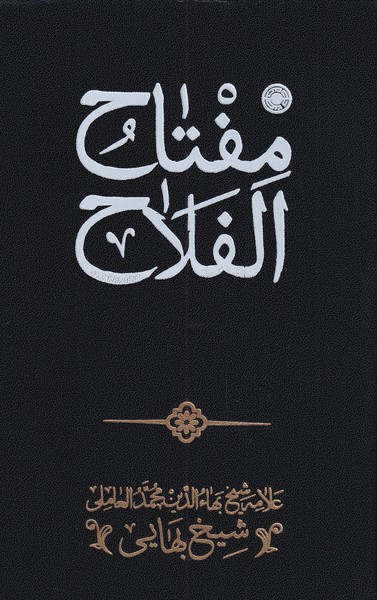 مِفْتٰاحُ
الفَلاٰح
علامه شیخ بهاءالدّین محمّد العاملی
شیخ بهایی